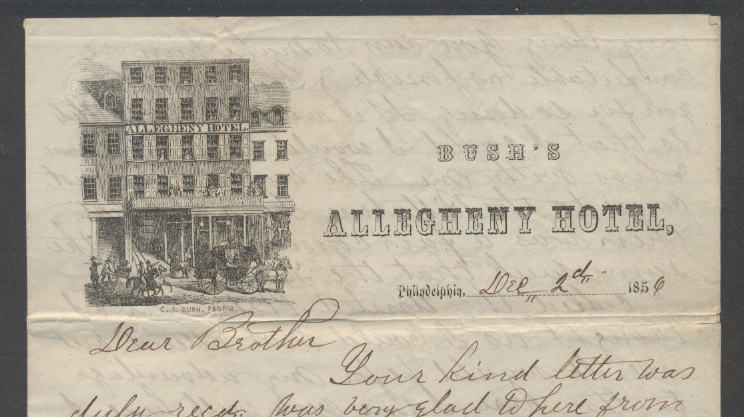 ALLEGHENY HOTEL.
C. J. BUSH, PROP'R.
BUSH'S
ALLEGHENY HOTEL,
Philadelphia, Dec 2d 1856
Dear Brother
Your kind letter was
duly recd, was very glad to here from